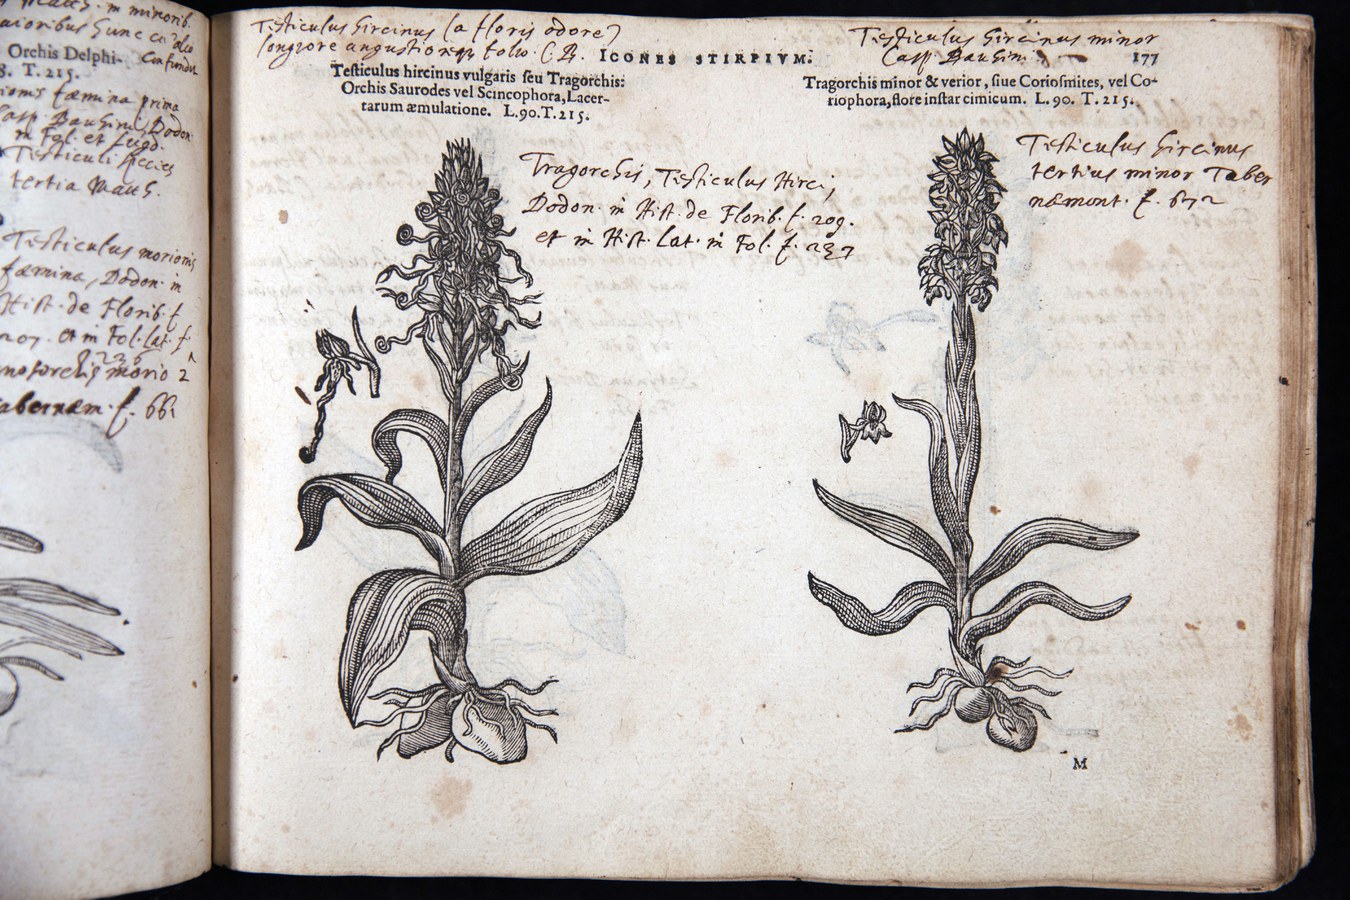 m minorib.
Orchis Delphi-
8. T. 215.
fæmina prima
Casp Bauhini, Dodon
in Fol. et Lugd.
Testiculi species
tertia Matth.
Testiculus morionis
fæmina, Dodon. in
Hist. de Florib. f.
207. et in Fol. lat. f.
236
morio 2
Tabernæm. f. 661
Testiculus hircinus (a floris odore)
longiore angustioreque folio C. B.
ICONES STIRPIVM.
177
Testiculus hircinus vulgaris seu Tragorchis:
Orchis Saurodes vel Scincophora, Lacer-
tarum æmulatione. L. 90. T. 215.
Tragorchis, Testiculus Hirci,
Dodon. in Hist. de Florib. f. 209.
et in Hist. Lat. in Fol. f. 237
Testiculus hircinus minor
Casp. Bauhini
Tragorchis minor & verior, siue Coriosmites, vel Co-
riophora, flore instar cimicum. L. 90. T. 215.
Testiculus hircinus
tertius minor Taber
næmont. f. 672
M